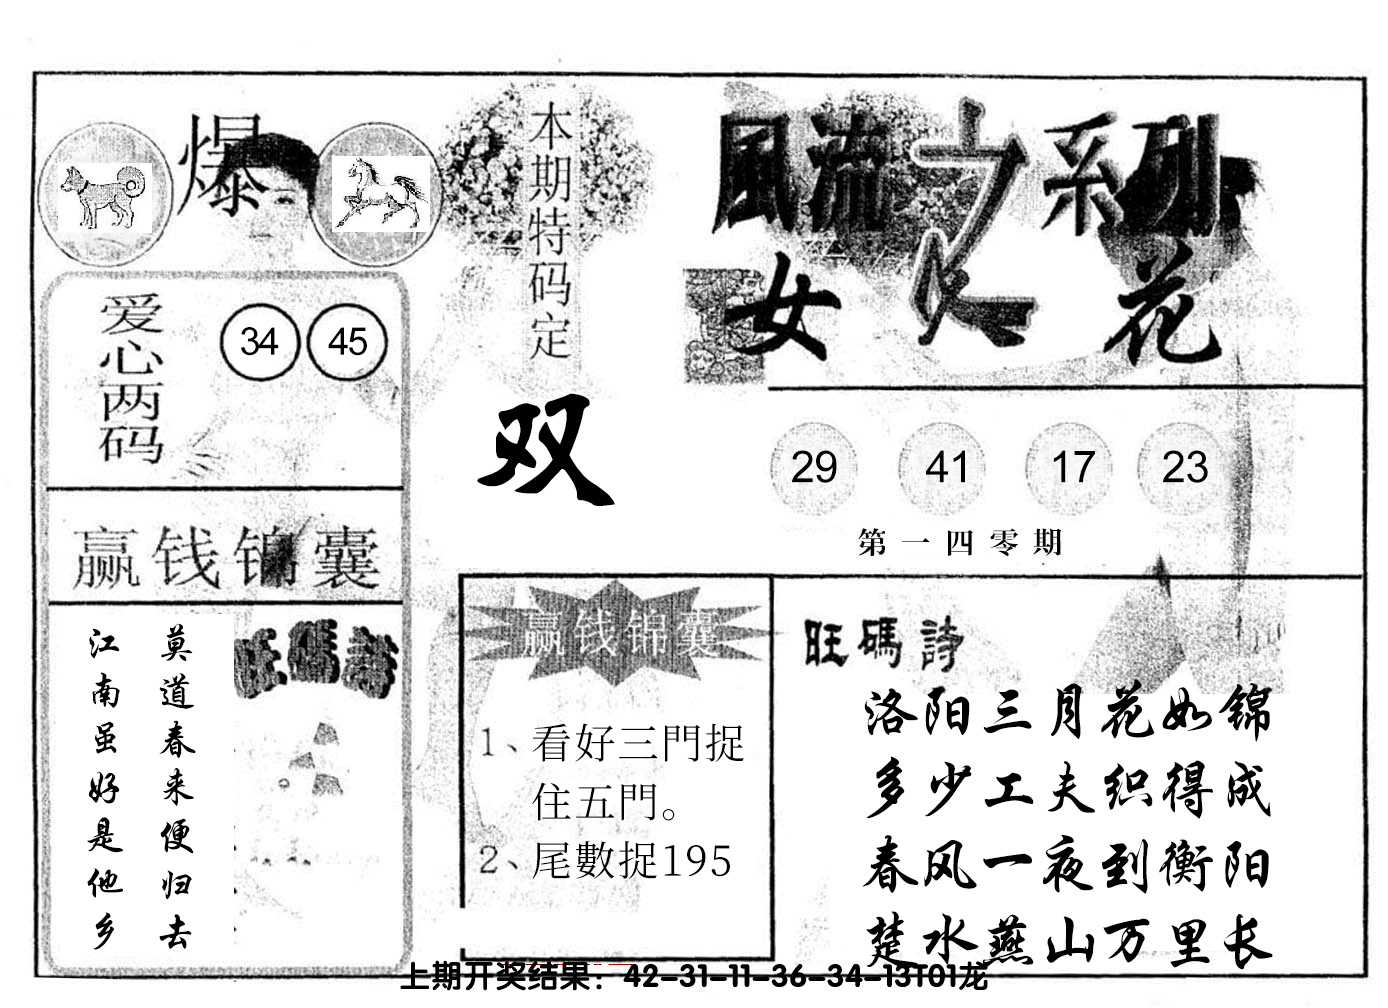 爆
本期特码定
双
爱心两码
34 45
赢钱锦囊
莫道春来便归去
江南虽好是他乡
旺碼詩
風流之系列
女人花
29 41 17 23
第一四零期
赢钱锦囊
1、看好三門捉
住五門。
2、尾數捉195
旺碼詩
洛阳三月花如锦
多少工夫织得成
春风一夜到衡阳
楚水燕山万里长
上期开奖结果：42-31-11-36-34-13T01龙